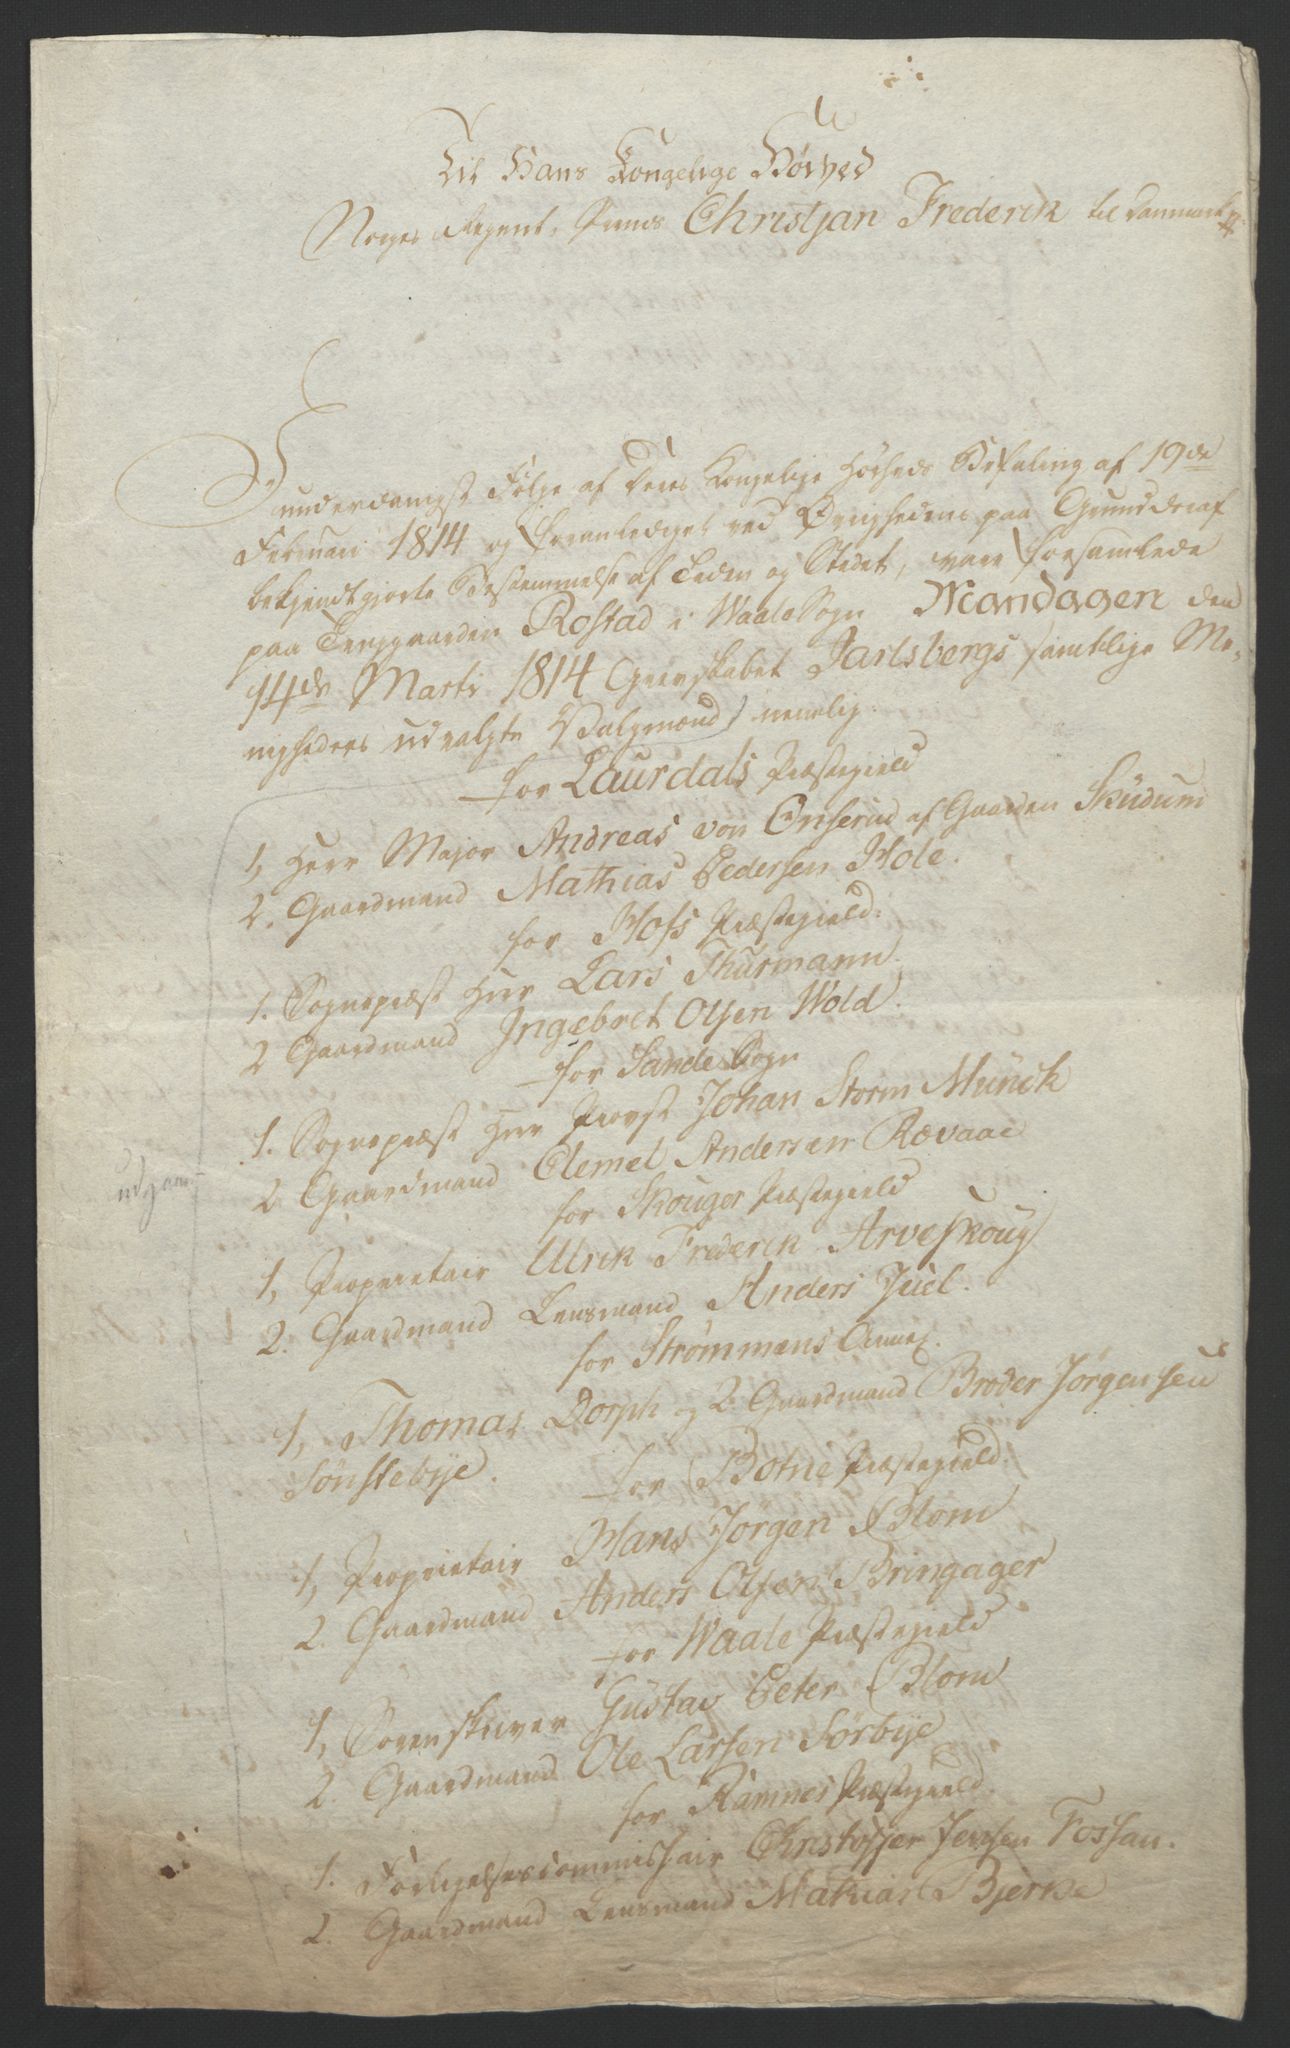 Til Hans Kongelige Höihed
Norges Regent, Prinds Christjan Frederik til Danmark
I underdanigst Følge af Deres Kongelige Höiheds Befaling af 19de
Februari 1814 og foranlediget ved Øvrighedens paa Grund deraf
bekjendtgjorte Bestemmelse af Tiden og Stedet, vare forsamlede
paa Tinggaarden Rostad i Waale Sogn Mandagen den
14de Marti 1814 Grevskabet Jarlsbergs samtlige Me-
nigheders udvalgte Valgmænd, nemlig:
for Laurdals Præstegield
1, Herr Major Andreas von Önserud af Gaarden Skudum
2. Gaardmand Mathias Pedersen Hole.
for Hofs Præstegield:
1. Sognepræst Herr Lars Thurmann.
2 Gaardmand Ingebret Olsen Wold.
for Sande Sogn
1. Sognepræst Herr Provst Johan Storm Munch
2 Gaardmand Elemel Andersen Revaae
udgaar
for Skouger Præstegield
1, Proprietair Ulrik Frederik Arveskoug
2. Gaardmand Lensmand Anders Juel.
for Strømmens Annex.
1, Thomas Dorph og 2 Gaardmand Broder Jørgensen
Sønstebye.
for Botne Præstegield.
1, Proprietair Hans Jørgen Blom
2. Gaardmand Anders Olsen Bringager
for Waale Præstegield
1, Sorenskriver Gustav Peter Blom
2. Gaardmand Ole Larsen Sørbye
for Ramnes Præstegield.
1. Forligelsescommissair Christopher Jensen Fossan.
2. Gaardmand Lensmand Mathias Bjerke